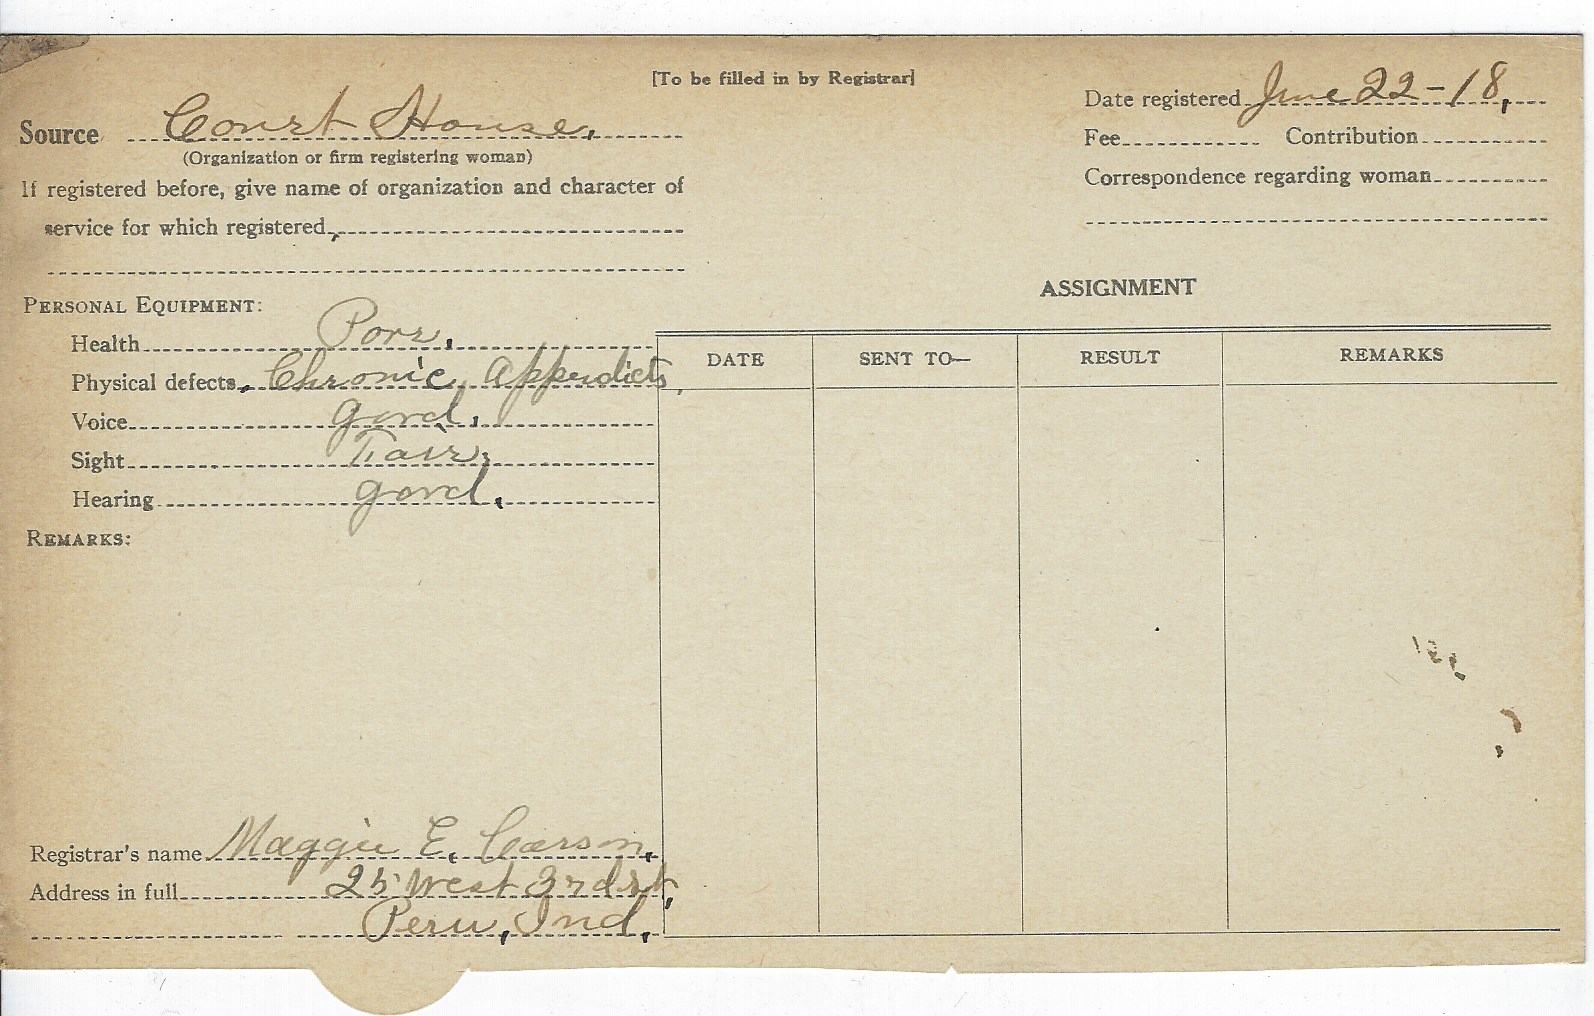 [To be filled in by Registrar]
Source Court House.
(Organization or firm registering woman)
If registered before, give name of organization and character of
service for which registered
Date registered June 22-18,
Fee Contribution
Correspondence regarding woman
PERSONAL EQUIPMENT:
Health Porr.
Physical defects. Chronic, Appendicts,
Voice good.
Sight Fair,
Hearing good.
REMARKS:
Registrar's name Maggie E. Carson.
Address in full 25 West 3rd st,
Peru, Ind.
ASSIGNMENT
DATE SENT TO— RESULT REMARKS